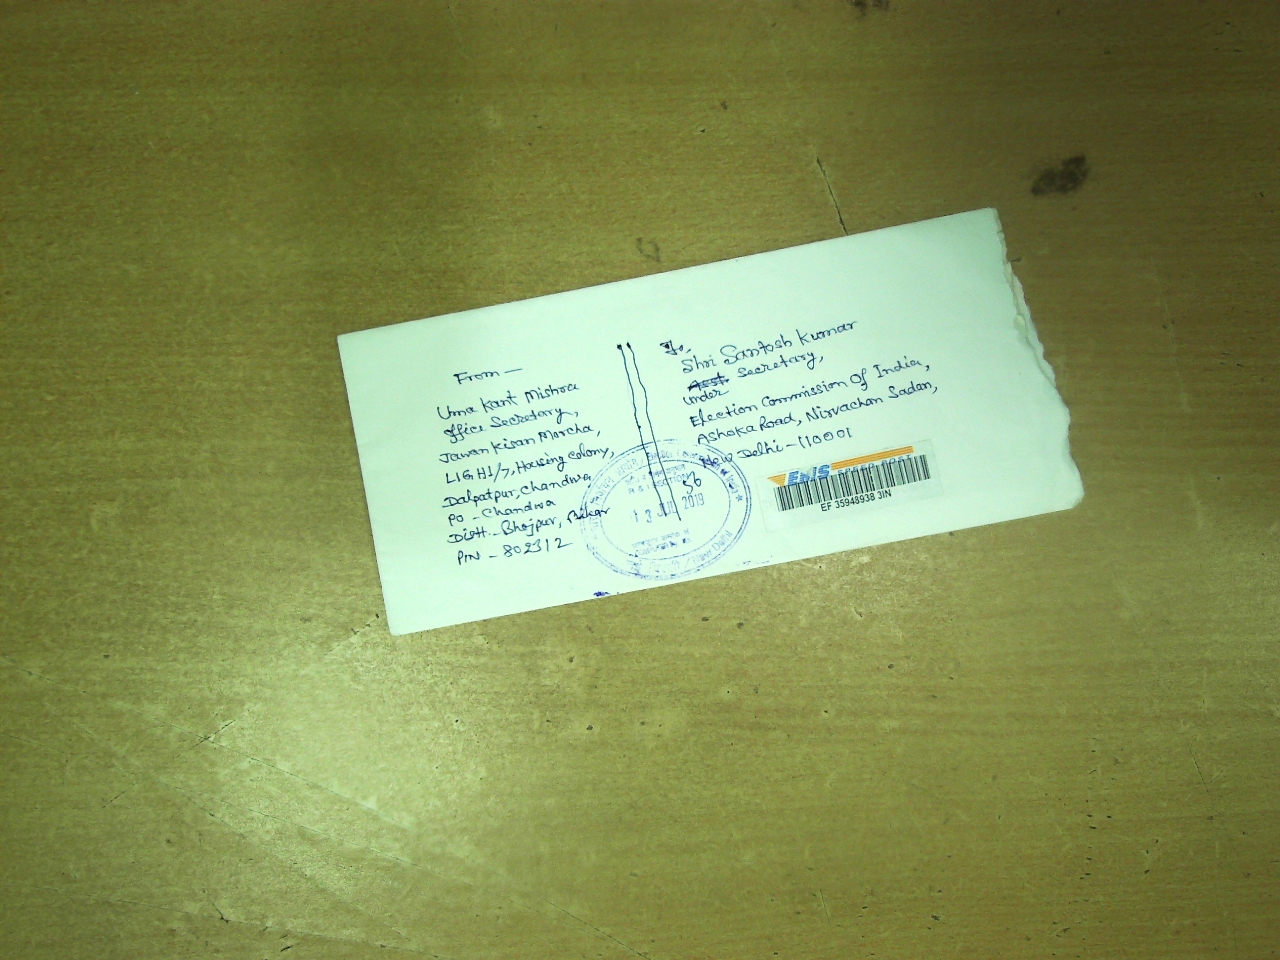 From —
Uma Kant Mishra
Office Secretary,
Jawan Kisan Morcha,
LIG H1/7, Housing Colony,
Dalpatpur, Chandwa
PO - Chandwa
Distt. - Bhojpur, Bihar
PIN - 802312
To,
Shri Santosh Kumar
Asst.
under Secretary,
Election Commission Of India,
Ashoka Road, Nirvachan Sadan,
New Delhi - 110001
SPEED POST
EF 35948938 3IN
SECTION
56
13 JUL 2019
New Delhi